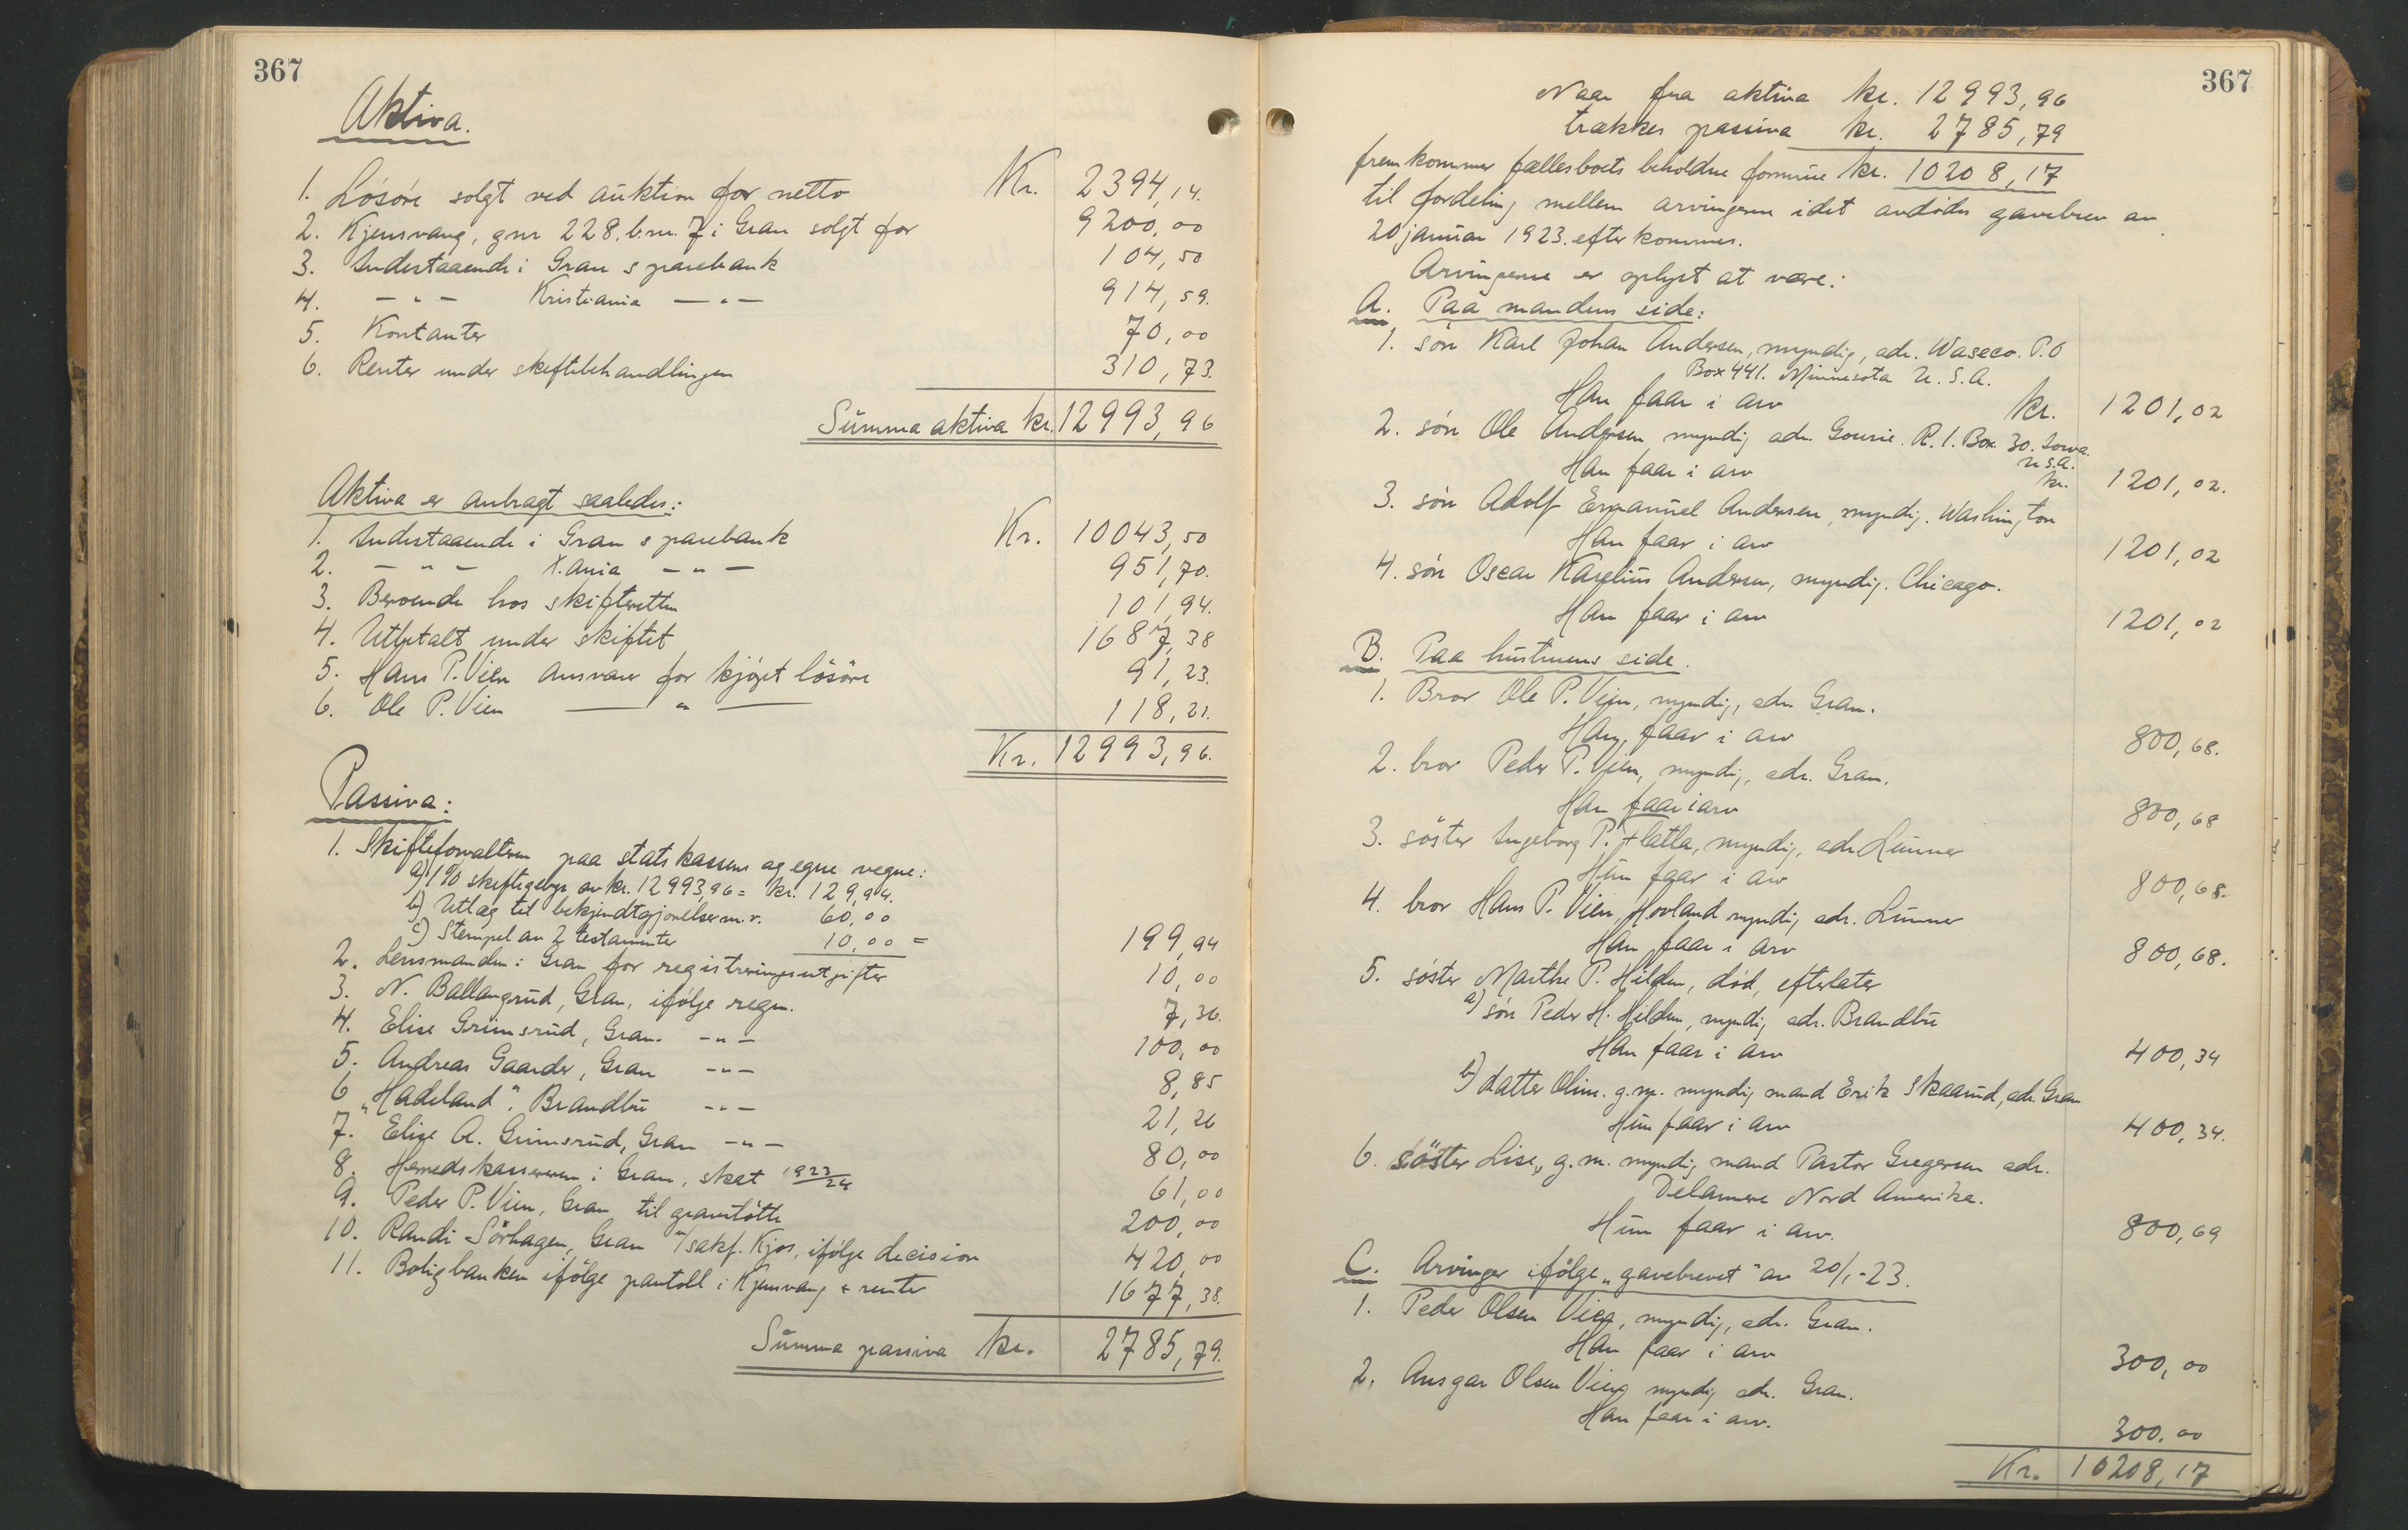 367
Aktiva.
1. Løsøre solgt ved auktion for netto Kr. 2394,14.
2. Kjensvang, gnr 228. b.nr. 7 i Gran solgt for 9200,00
3. Indestaaende i Gran sparebank 104,50
4. — " — Kristiania — " — 914,59.
5. Kontanter 70,00
6. Renter under skiftebehandlingen 310,73.
Summa aktiva kr. 12993,96
Aktiva er anbragt saaledes:
1. Indestaaende i Gran sparebank Kr. 10043,50
2. — " — X.ania — " — 951,70.
3. Beroende hos skifteretten 101,94.
4. Utbetalt under skiftet 1687,38
5. Hans P. Vien ansvarer for kjøpt løsøre 91,23.
6. Ole P. Vien — " — 118,21.
Kr. 12993,96.
Passiva:
1. Skifteforvalteren paa statskassens og egne vegne:
a) 1% skiftegebyr av kr. 12993,96 = kr. 129,94.
b) Utlæg til bekjendtgjørelser m.v. 60,00
c) Stempel av 2 testamenter 10,00 = 199,94
2. Lensmanden i Gran for registreringsutgifter 10,00
3. N. Ballangrud, Gran, ifølge regn. 7,36.
4. Elise Grimsrud, Gran. — " — 100,00
5. Andreas Gaarder, Gran — " — 8,85
6 "Hadeland". Brandbu — " — 21,26
7. Elise A. Grimsrud, Gran — " — 80,00
8. Herredskassereren i Gran, skat 1923/24 61,00
9. Peder P. Vien, Gran til gravstøtte 200,00
10. Randi Sørhagen, Gran v/sakf. Kjos, ifølge decision 420,00
11. Boligbanken ifølge pantobl. i Kjensvang + renter 1677,38.
Summa passiva kr. 2785,79.
367
Naar fra aktiva kr. 12993,96
trækkes passiva kr. 2785,79
fremkommer fællesboets beholdne formue kr. 10208,17
til fordeling mellem arvingerne idet avdødes gavebrev av
20 januar 1923. efterkommes.
Arvingerne er oplyst at være:
A. Paa mandens side:
1. søn Karl Johan Andersen, myndig, adr. Waseco. P.O
Box 441. Minnesota U.S.A.
Han faar i arv kr. 1201,02
2. søn Ole Andersen myndig adr. Gowrie. R. 1. Box. 30. Iowa.
U.S.A.
Han faar i arv kr. 1201,02.
3. søn Adolf Emanuel Andersen, myndig. Washington
Han faar i arv 1201,02
4. søn Oscar Karelius Andersen, myndig. Chicago.
Han faar i arv 1201,02
B. Paa hustruens side.
1. Bror Ole P. Vien, myndig, adr. Gran.
Han faar i arv 800,68.
2. bror Peder P. Vien, myndig, adr. Gran.
Han faar i arv 800,68
3. søster Ingeborg P. Flatla, myndig, adr. Lunner
Hun faar i arv 800,68.
4. bror Hans P. Vien, Hovland myndig adr. Lunner
Han faar i arv 800,68.
5. søster Marthe P. Hilden, død, efterlater
a) søn Peder H. Hilden, myndig adr. Brandbu
Han faar i arv 400,34
b) datter Oline. g.m. myndig mand Erik Skaarud, adr. Gran
Hun faar i arv 400,34.
6. søster Lise, g.m. myndig mand Pastor Gregersen adr.
Delamere Nord Amerika.
Hun faar i arv. 800,69
C. Arvinger ifølge "gavebrevet" av 20/1-23.
1. Peder Olsen Vien, myndig, adr. Gran.
Han faar i arv 300,00
2. Ansgar Olsen Vien myndig adr. Gran.
Han faar i arv. 300,00
Kr. 10208,17